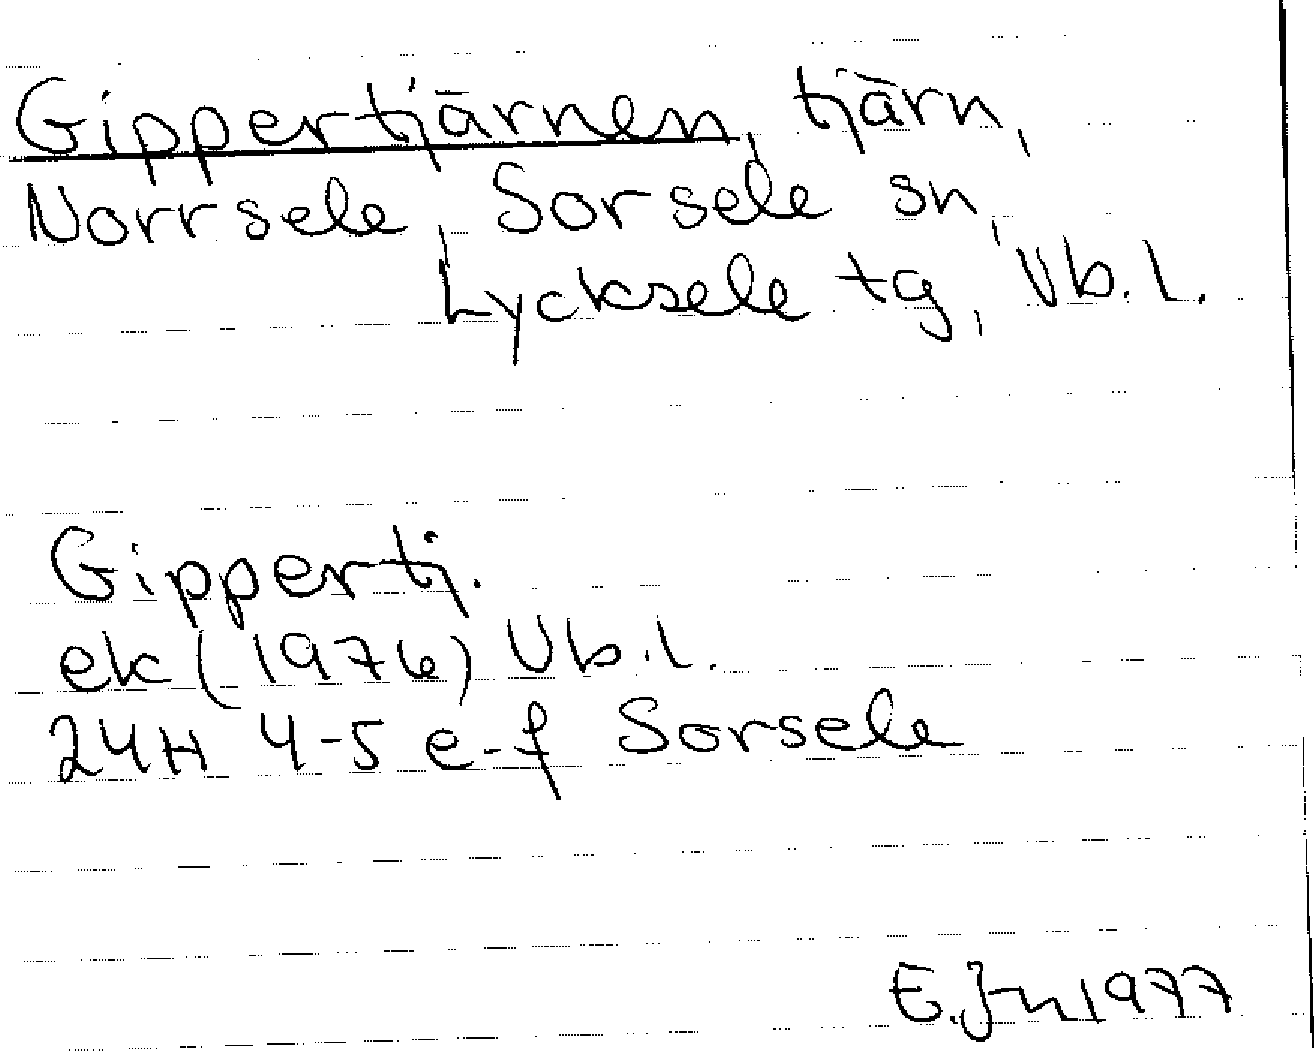 Gippertjärnen, tjärn,
Norrsele, Sorsele sn,
Lycksele tg, Vb. l.
Gippertj.
ek (1976) Vb. l.
24H 4-5 e-f Sorsele
E. 1977